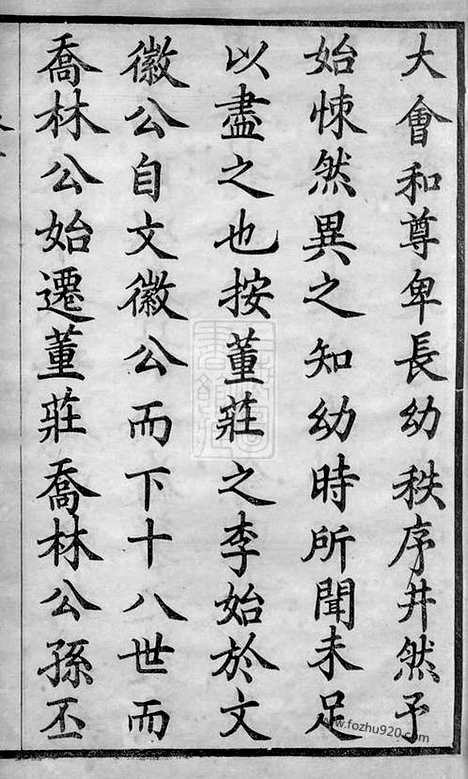 大會和尊卑長幼秩序井然予
始悚然異之知幼時所聞未足
以盡之也按董莊之李始於文
徽公自文徽公而下十八世而
喬林公始遷董莊喬林公孫丕
www.fozhu920.com